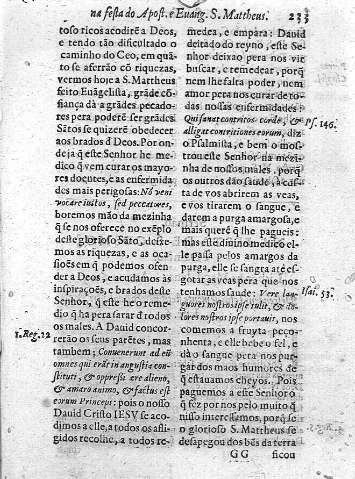 na festa do Apost. e Euang. S. Mattheus. 233
tosos ricos acodirẽ a Deos,
e tendo tão dificultado o
caminho do Ceo, em quã
to se aferrão cõ riquezas,
vermos hoje a S. Mattheus
feito Euãgelista, grãde cõ-
fiança dà a grãdes pecado-
res pera poderẽ ser grãdes
Sãtos se quizerẽ obedecer
aos brados d̃ Deos. Por on-
de ja q̃ este Senhor he me-
dico q̃ vem curar os mayo-
res doentes, e as enfermida
des mais perigosas: Nõ veni
vocare iustos, sed peccatores,
boremos mão da mezinha
q̃ se nos oferece no exẽplo
deste glorioso Sãto, deixe-
mos as riquezas, e as oca-
siões em q̃ podemos ofen-
der a Deos, e acudamos às
inspirações, e brados deste
Senhor, q̃ este he o reme-
dio q̃ ha pera sarar d̃ todos
os males. A Dauid concor-
1. Reg. 22 rerão os seus parẽtes, mas
tambem; Conuenerunt ad eũ
omnes qui erãt in angustia con-
stituti, & oppressi ære alieno,
& amaro animo, & factus est
eorum Princeps: pois o nosso
Dauid Cristo IESV se aco-
dimos a elle, a todos os afli-
gidos recolhe, a todos re-
medea, e empara: Dauid
deitado do reyno, este Se-
nhor deixa pera nos vir
buscar, e remedear, porq̃
nem lhe falta poder, nem
amor pera nos curar de to-
das nossas enfermidades:
Qui sanat contritos corde, & Ps. 146.
alligat contritiones eorum, diz
o Psalmista, e bem o mos-
trou este Senhor na mezi-
nha de nossos males, porq̃
os outros dão saude, à cus-
ta de vos abrirem as veas,
e vos tirarem o sangue, e
darem a purga amargosa, e
mais querẽ q̃ lhe pagueis:
mas este diuino medico el-
le passa pelos amargos da
purga, elle se sangra atè es-
gotar as veas pera que nos
tenhamos saude: Vere lan- Isai. 53.
guores nostros ipse tulit, & do-
lores nostros ipse portauit, nos
comemos a fruyta peço-
nhenta, e elle bebe o fel, e
dà o sangue pera nos pur-
gar dos maos humores de
q̃ estauamos cheyos. Pois
paguemos a este Senhor o
q̃ fez por nos pelo muito q̃
nisso interessamos, porq̃ se
o glorioso S. Mattheus se
desapegou dos bẽs da terra
GG ficou